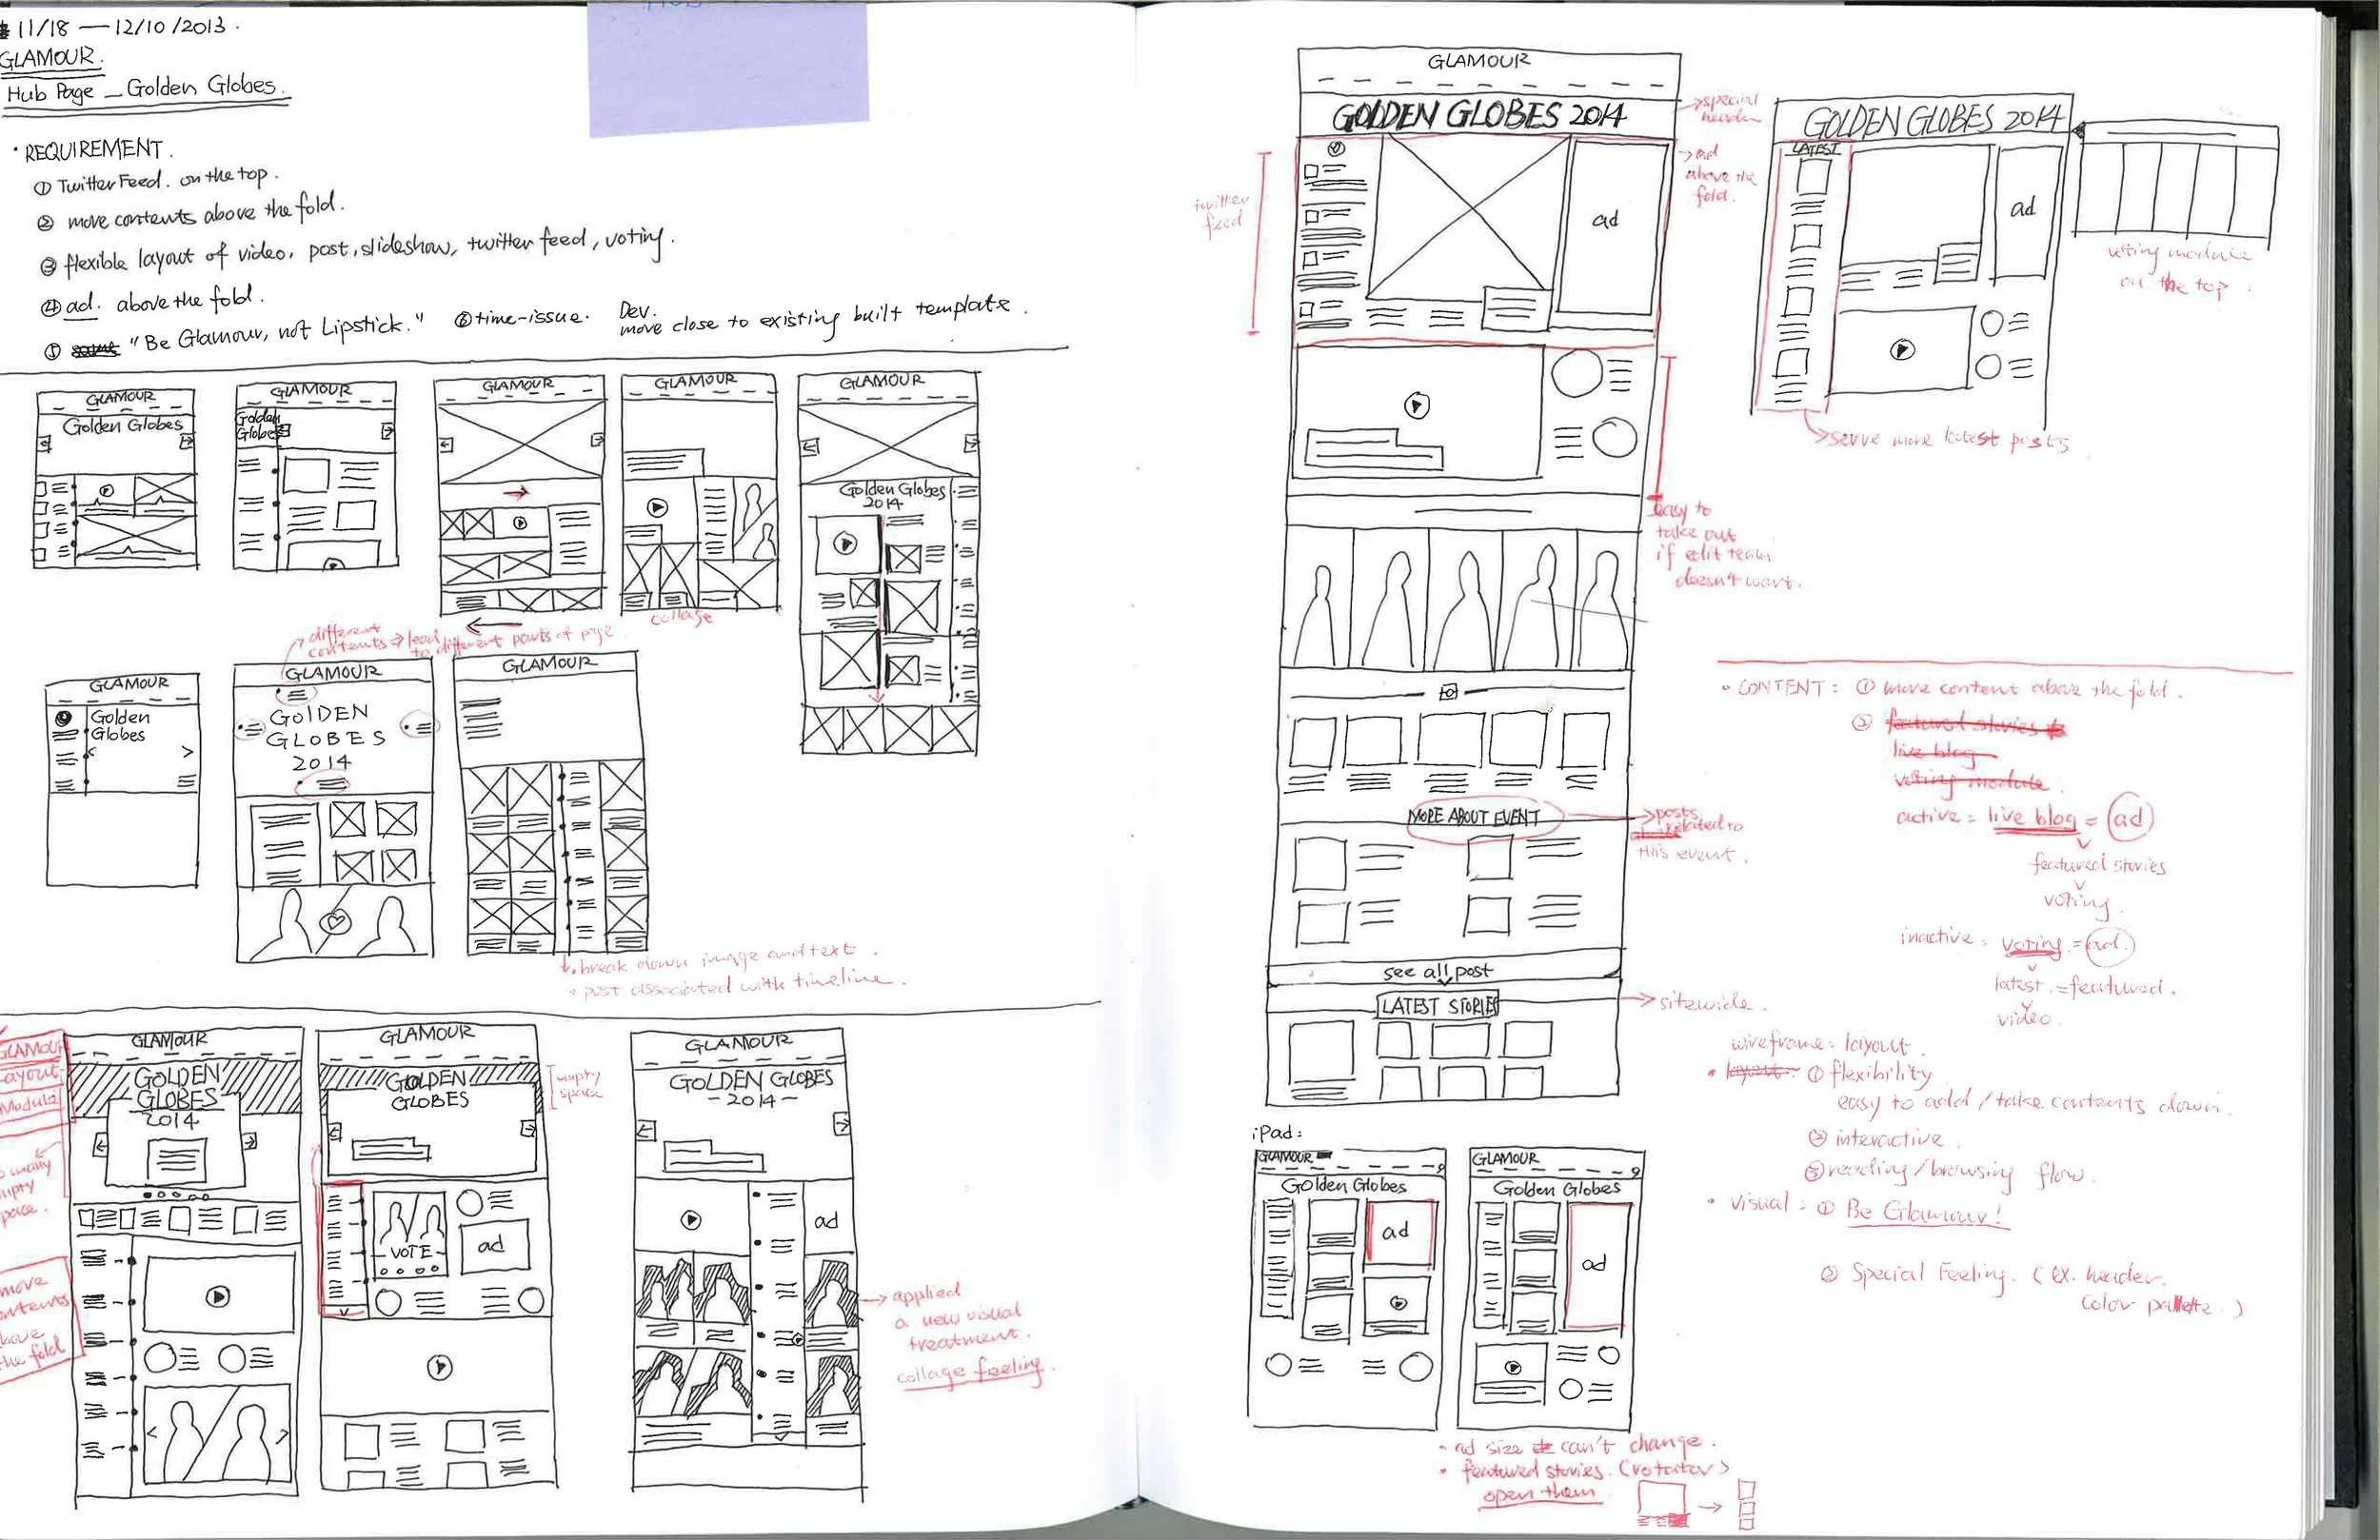 11/18 — 12/10/2013.
GLAMOUR.
Hub Page — Golden Globes.
· REQUIREMENT.
① Twitter Feed. on the top.
② move contents above the fold.
③ flexible layout of video, post, slideshow, twitter feed, voting.
④ ad. above the fold.
⑤ "Be Glamour, not Lipstick." ⑥ time-issue. Dev. move close to existing built template.
GLAMOUR
Golden Globes
GLAMOUR
Golden
Globes
GLAMOUR
GLAMOUR
collage
GLAMOUR
Golden Globes
2014
different
contents → lead
to different parts of page
GLAMOUR
Golden
Globes
GLAMOUR
GOLDEN
GLOBES
2014
GLAMOUR
· break down image and text.
· post associated with timeline.
GLAMOUR
Layout
Module
many
space.
move
contents
above
the fold
GLAMOUR
GOLDEN
GLOBES
2014
GLAMOUR
GOLDEN
GLOBES
empty
space
VOTE
ad
GLAMOUR
GOLDEN GLOBES
- 2014 -
ad
applied
a new visual
treatment.
collage feeling.
GLAMOUR
GOLDEN GLOBES 2014
special
header
twitter
feed
ad
ad
above the
fold.
easy to
take out
if edit team
doesn't want.
MORE ABOUT EVENT
posts
related to
this event.
see all post
LATEST STORIES
sitewide.
GOLDEN GLOBES 2014
LATEST
ad
voting module
on the top.
serve more latest posts
· CONTENT: ① move content above the fold.
② featured stories
live blog
voting module.
active = live blog = ad
featured stories
voting.
inactive = voting = ad.
latest = featured.
video.
wireframe = layout.
· layout ① flexibility
easy to add / take contents down.
② interactive.
③ reading / browsing flow.
· visual: ① Be Glamour!
② Special Feeling. (ex. header.
color palette.)
iPad:
GLAMOUR
Golden Globes
ad
GLAMOUR
Golden Globes
ad
· ad size can't change.
· featured stories. (rotator)
open them